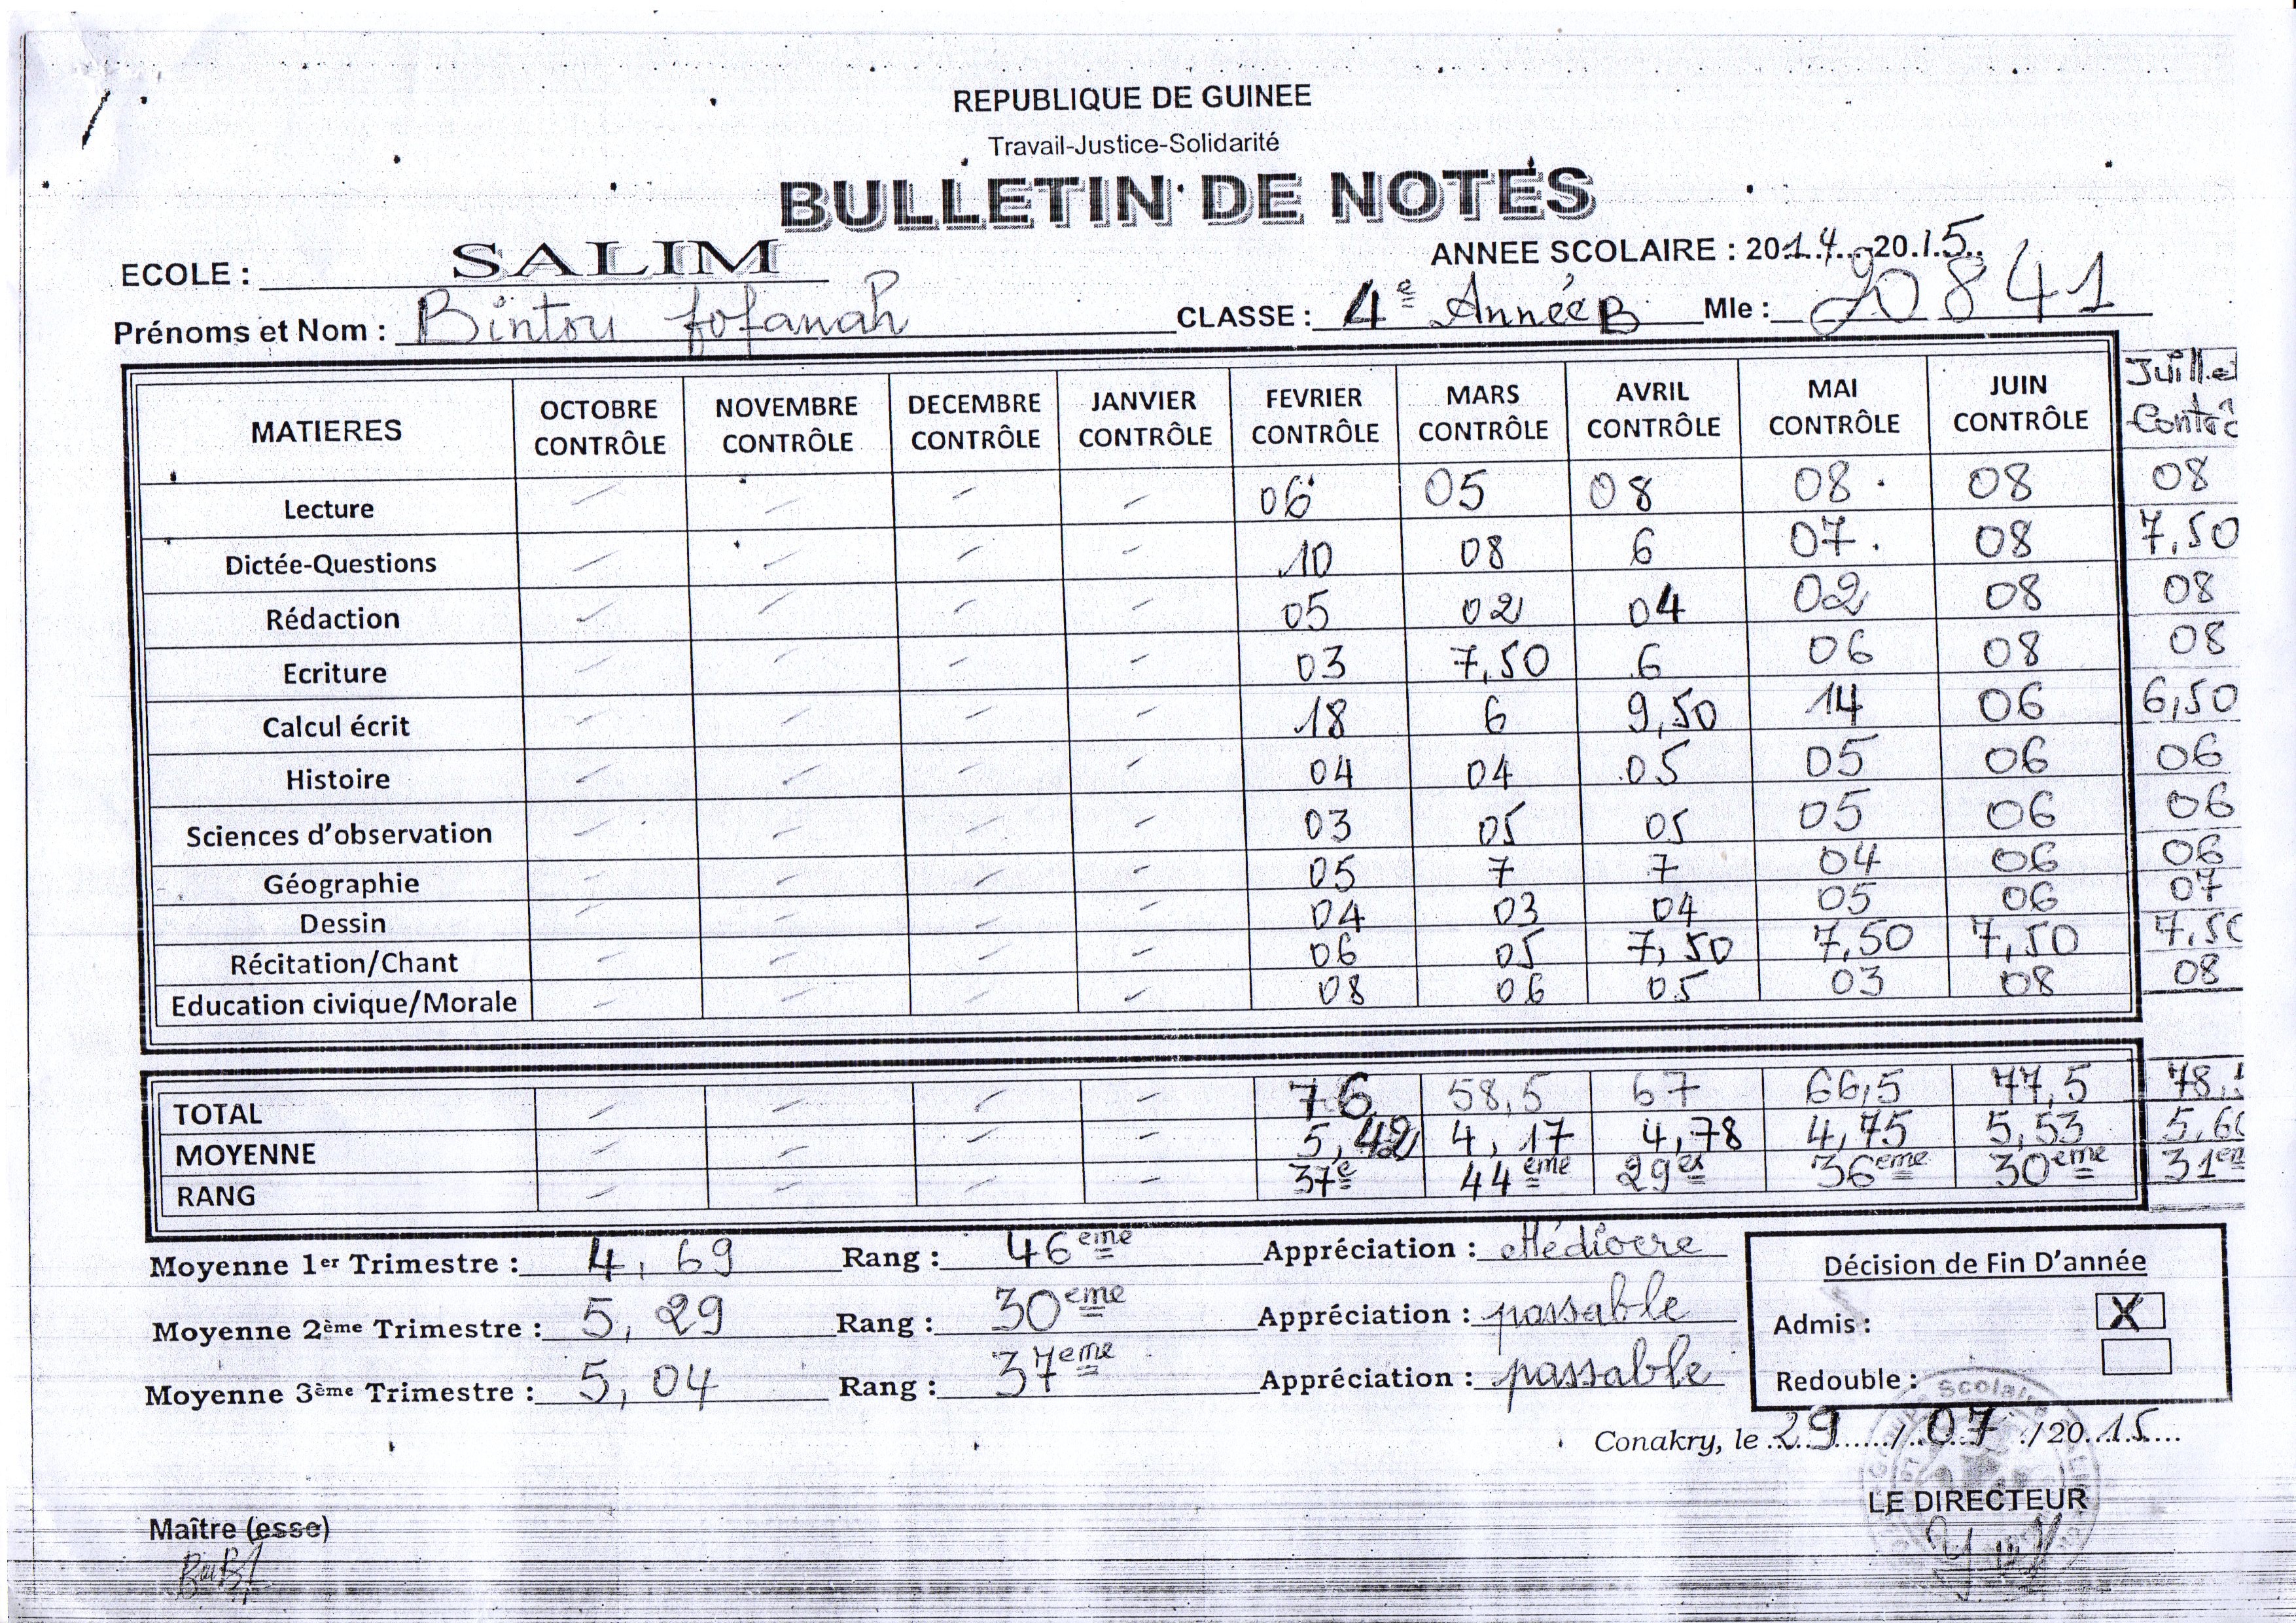 REPUBLIQUE DE GUINEE
Travail-Justice-Solidarité
BULLETIN DE NOTES
ECOLE : SALIM ANNEE SCOLAIRE : 2014 - 2015
Prénoms et Nom : Bintou fofanah CLASSE : 4e Année B Mle : 20841
MATIERES OCTOBRE CONTRÔLE NOVEMBRE CONTRÔLE DECEMBRE CONTRÔLE JANVIER CONTRÔLE FEVRIER CONTRÔLE MARS CONTRÔLE AVRIL CONTRÔLE MAI CONTRÔLE JUIN CONTRÔLE Juillet
Lecture - - - - 06 05 08 08 08 08
Dictée-Questions - - - - 10 08 6 07 08 7,50
Rédaction - - - - 05 02 04 02 08 08
Ecriture - - - - 03 7,50 6 06 08 08
Calcul écrit - - - - 18 6 9,50 14 06 6,50
Histoire - - - - 04 04 05 05 06 06
Sciences d'observation - - - - 03 05 05 05 06 06
Géographie - - - - 05 7 7 04 06 06
Dessin - - - - 04 03 04 05 06 07
Récitation/Chant - - - - 06 05 7,50 7,50 7,50 7,50
Education civique/Morale - - - - 08 06 05 03 08 08
TOTAL - - - - 76 58,5 67 66,5 77,5
MOYENNE - - - - 5,42 4,17 4,78 4,75 5,53
RANG - - - - 37e 44eme 29e 36eme 30eme
Moyenne 1er Trimestre : 4,69 Rang : 46eme Appréciation : Médiocre
Moyenne 2ème Trimestre : 5,29 Rang : 30eme Appréciation : passable
Moyenne 3ème Trimestre : 5,04 Rang : 37eme Appréciation : passable
Décision de Fin D'année
Admis : X
Redouble :
Conakry, le 29 / 07 / 2015
LE DIRECTEUR
Maître (esse)